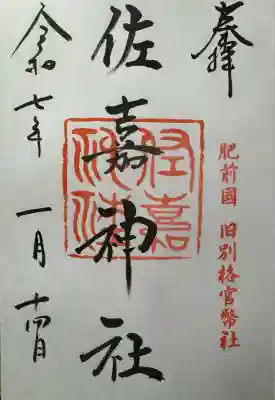 奉拝
肥前國 旧別格官幣社
佐嘉神社
令和七年 一月 十四日